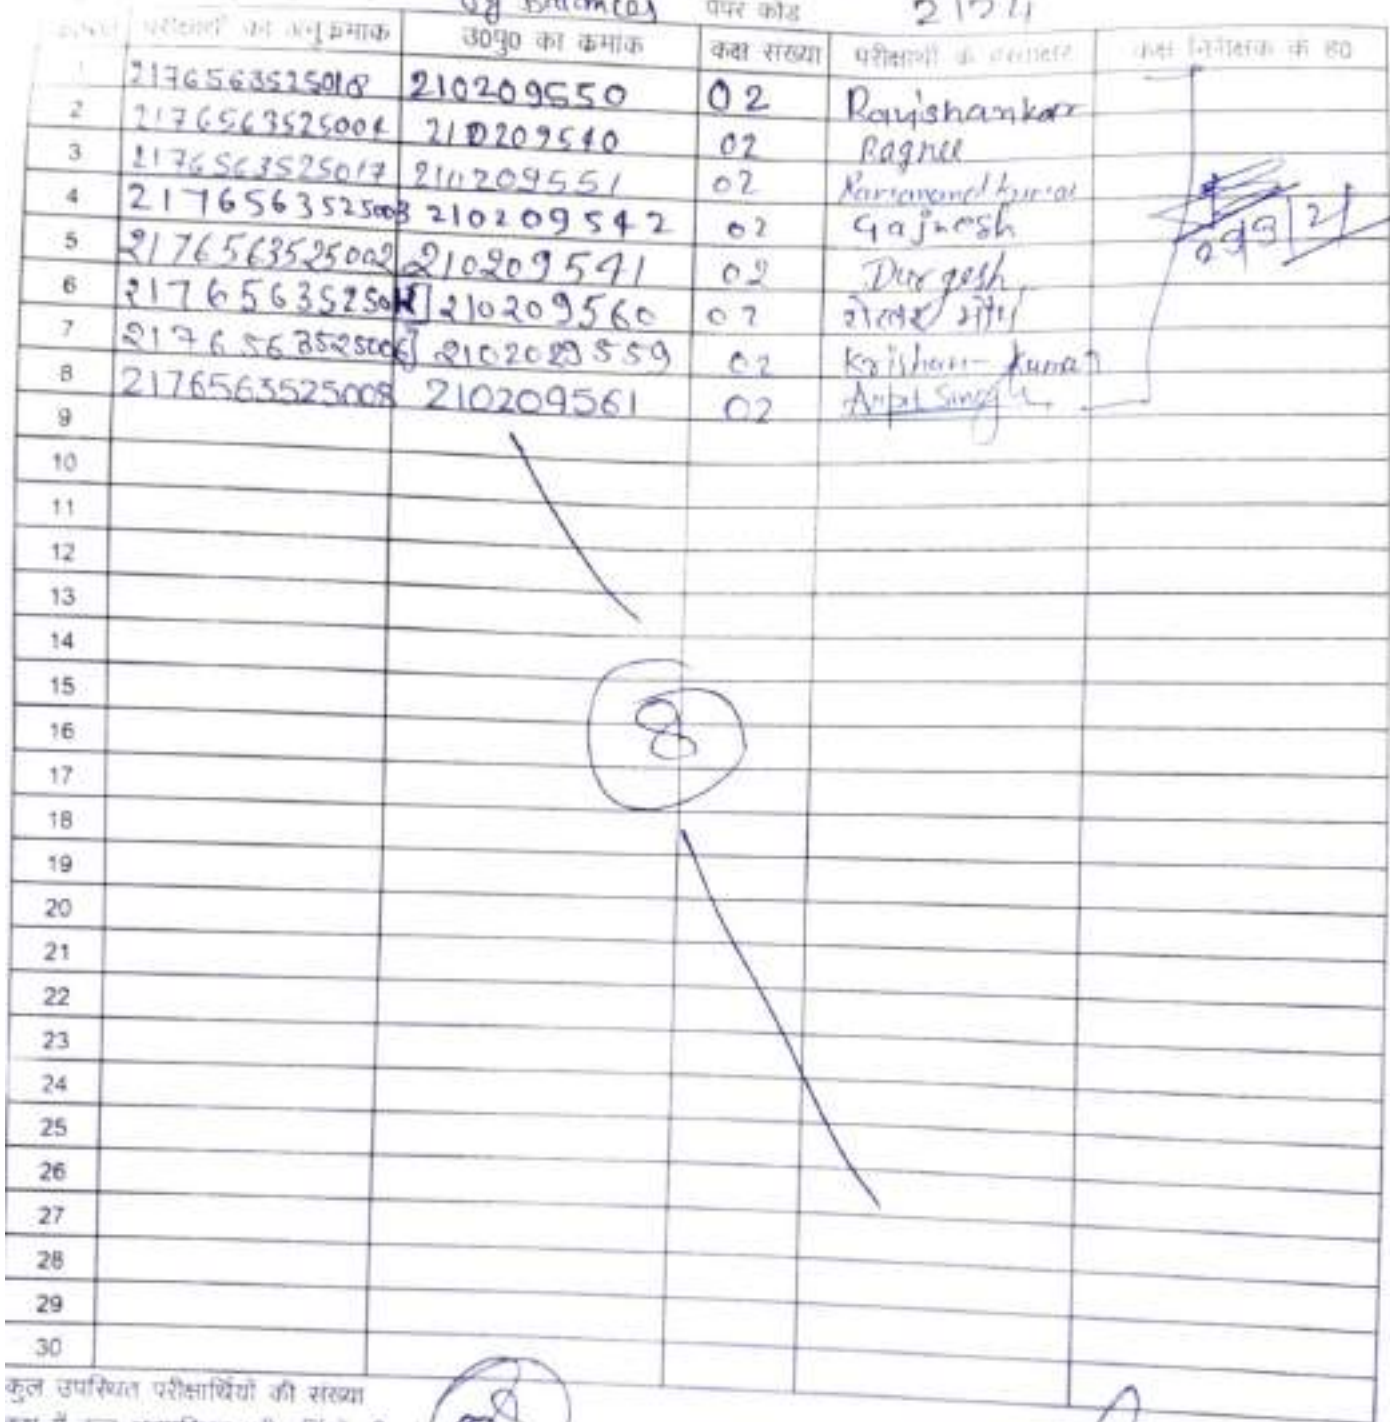 पेपर कोड 2124
परीक्षार्थी का अनुक्रमांक उ0पु0 का क्रमांक कक्ष संख्या परीक्षार्थी के हस्ताक्षर कक्ष निरीक्षक के ह0
1 2176563525018 210209550 02 Ravishankar
2 2176563525001 210209540 02 Ragnee
3 2176563525017 210209551 02
4 2176563525003 210209542 02 Gajnesh
5 2176563525002 210209541 02 Durgesh
6 210209560 02
7 2176563525006 02 Krishan Kumar
8 2176563525008 210209561 02 Singh
9
10
11
12
13
14
15
8
16
17
18
19
20
21
22
23
24
25
26
27
28
29
30
कुल उपस्थित परीक्षार्थियों की संख्या 8